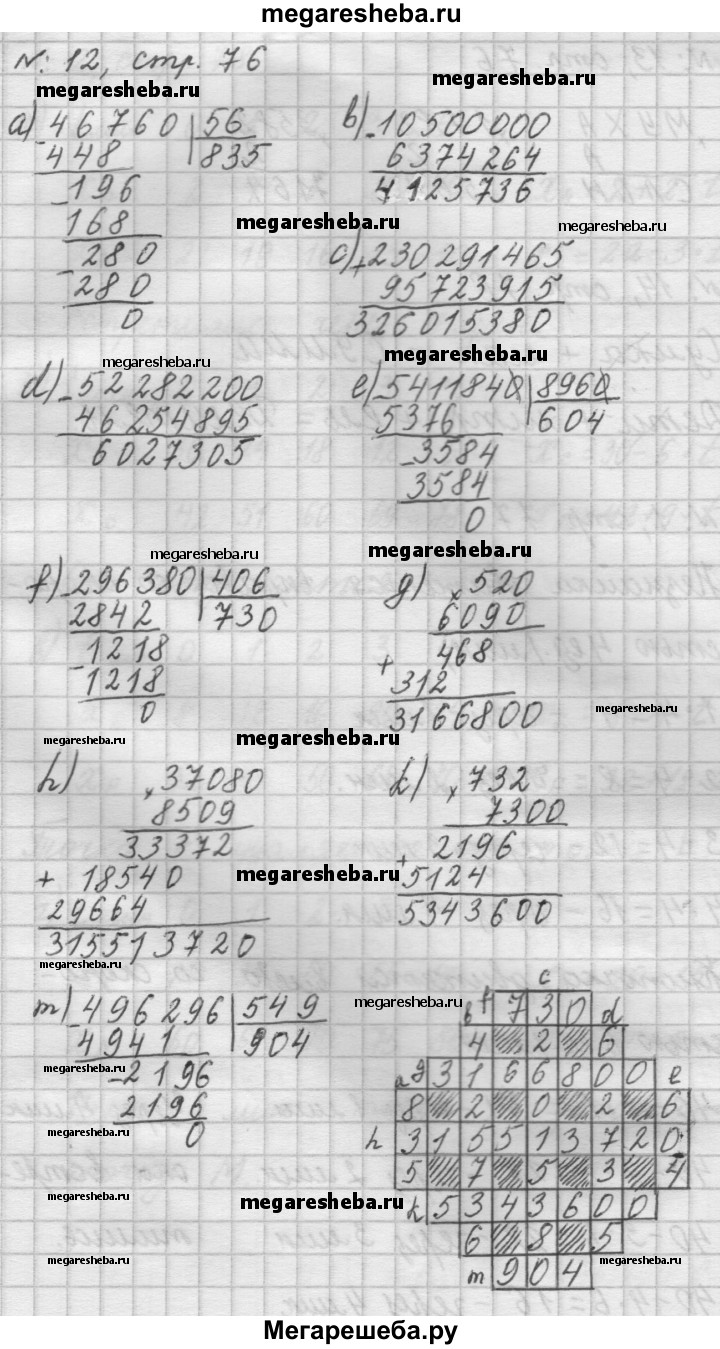 megaresheba.ru
№ 12, стр. 76
megaresheba.ru
megaresheba.ru
a) 46760 | 56
- 448 | 835
- 196
168
megaresheba.ru
- 280
280
0
b) - 10500000
6374264
4125736
megaresheba.ru
c) + 230291465
95723915
326015380
megaresheba.ru
megaresheba.ru
d) - 52282200
46254895
6027305
e) - 5411840 | 8960
5376 | 604
- 3584
3584
0
megaresheba.ru
megaresheba.ru
f) - 296380 | 406
2842 | 730
- 1218
1218
0
g) × 520
6090
+ 468
312
3166800
megaresheba.ru
megaresheba.ru
megaresheba.ru
h) × 37080
8509
33372
+ 18540
29664
315513720
megaresheba.ru
k) × 732
7300
+ 2196
5124
5343600
megaresheba.ru
megaresheba.ru
m) - 496296 | 549
4941 | 904
- 2196
2196
0
c
b f 7 3 0 d
4 2 6
a g 3 1 6 6 8 0 0 e
8 2 0 2 6
h 3 1 5 5 1 3 7 2 0
5 7 5 3 4
k 5 3 4 3 6 0 0
6 8 5
m 9 0 4
megaresheba.ru
megaresheba.ru
megaresheba.ru
megaresheba.ru
Мегарешеба.ру